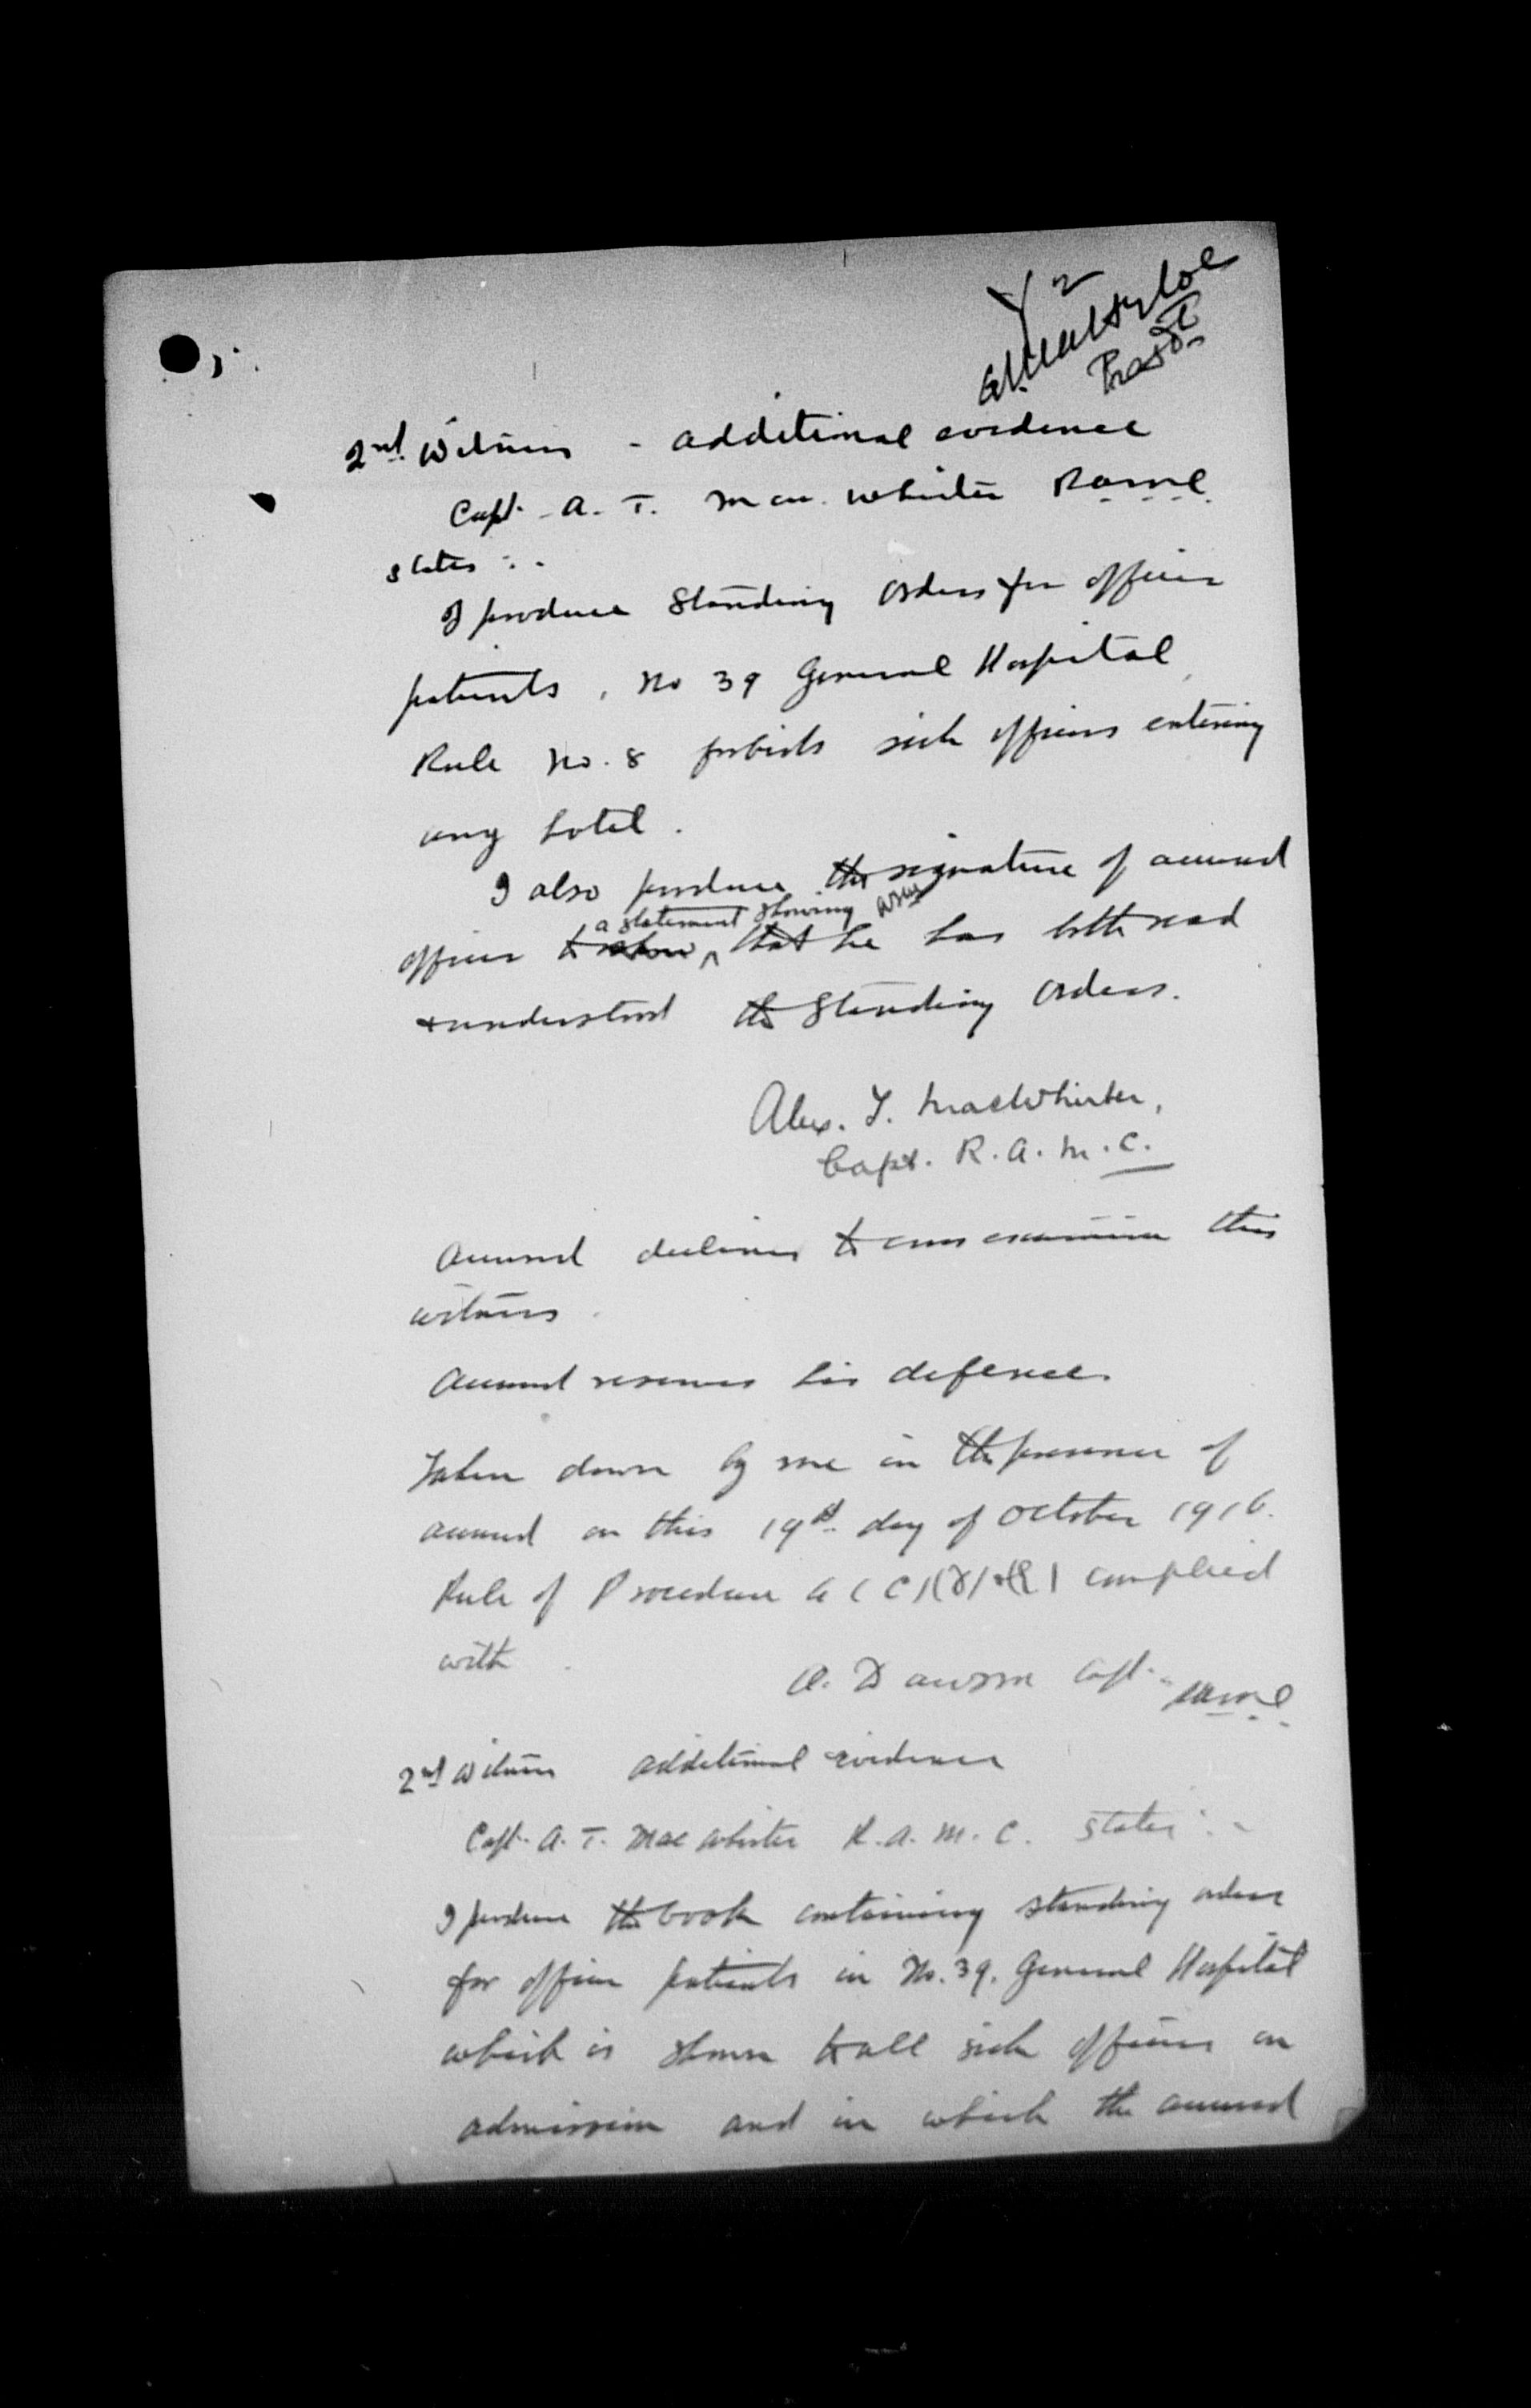 Y 2
Presdt
2nd Witness - additional evidence
Capt. A. T. Mac Whirter RAMC
states :-
I produce Standing Orders for officer
patients, No 39 General Hospital
Rule No. 8 forbids sick officers entering
any hotel.
I also produce the signature of accused
a statement showing
officer to show that he has both read
& understood the Standing Orders.
Alex. T. MacWhirter,
Capt. R.A.M.C.
Accused declines to cross examine this
witness.
Accused reserves his defence.
Taken down by me in the presence of
accused on this 19th day of October 1916.
Rule of Procedure 4 (C)(D)&(E) complied
with
A. Dawson Capt. RAMC
2nd Witness additional evidence
Capt. A. T. MacWhirter R.A.M.C. states :-
I produce the book containing standing orders
for officer patients in No. 39. General Hospital
which is shown to all sick officers on
admission and in which the accused